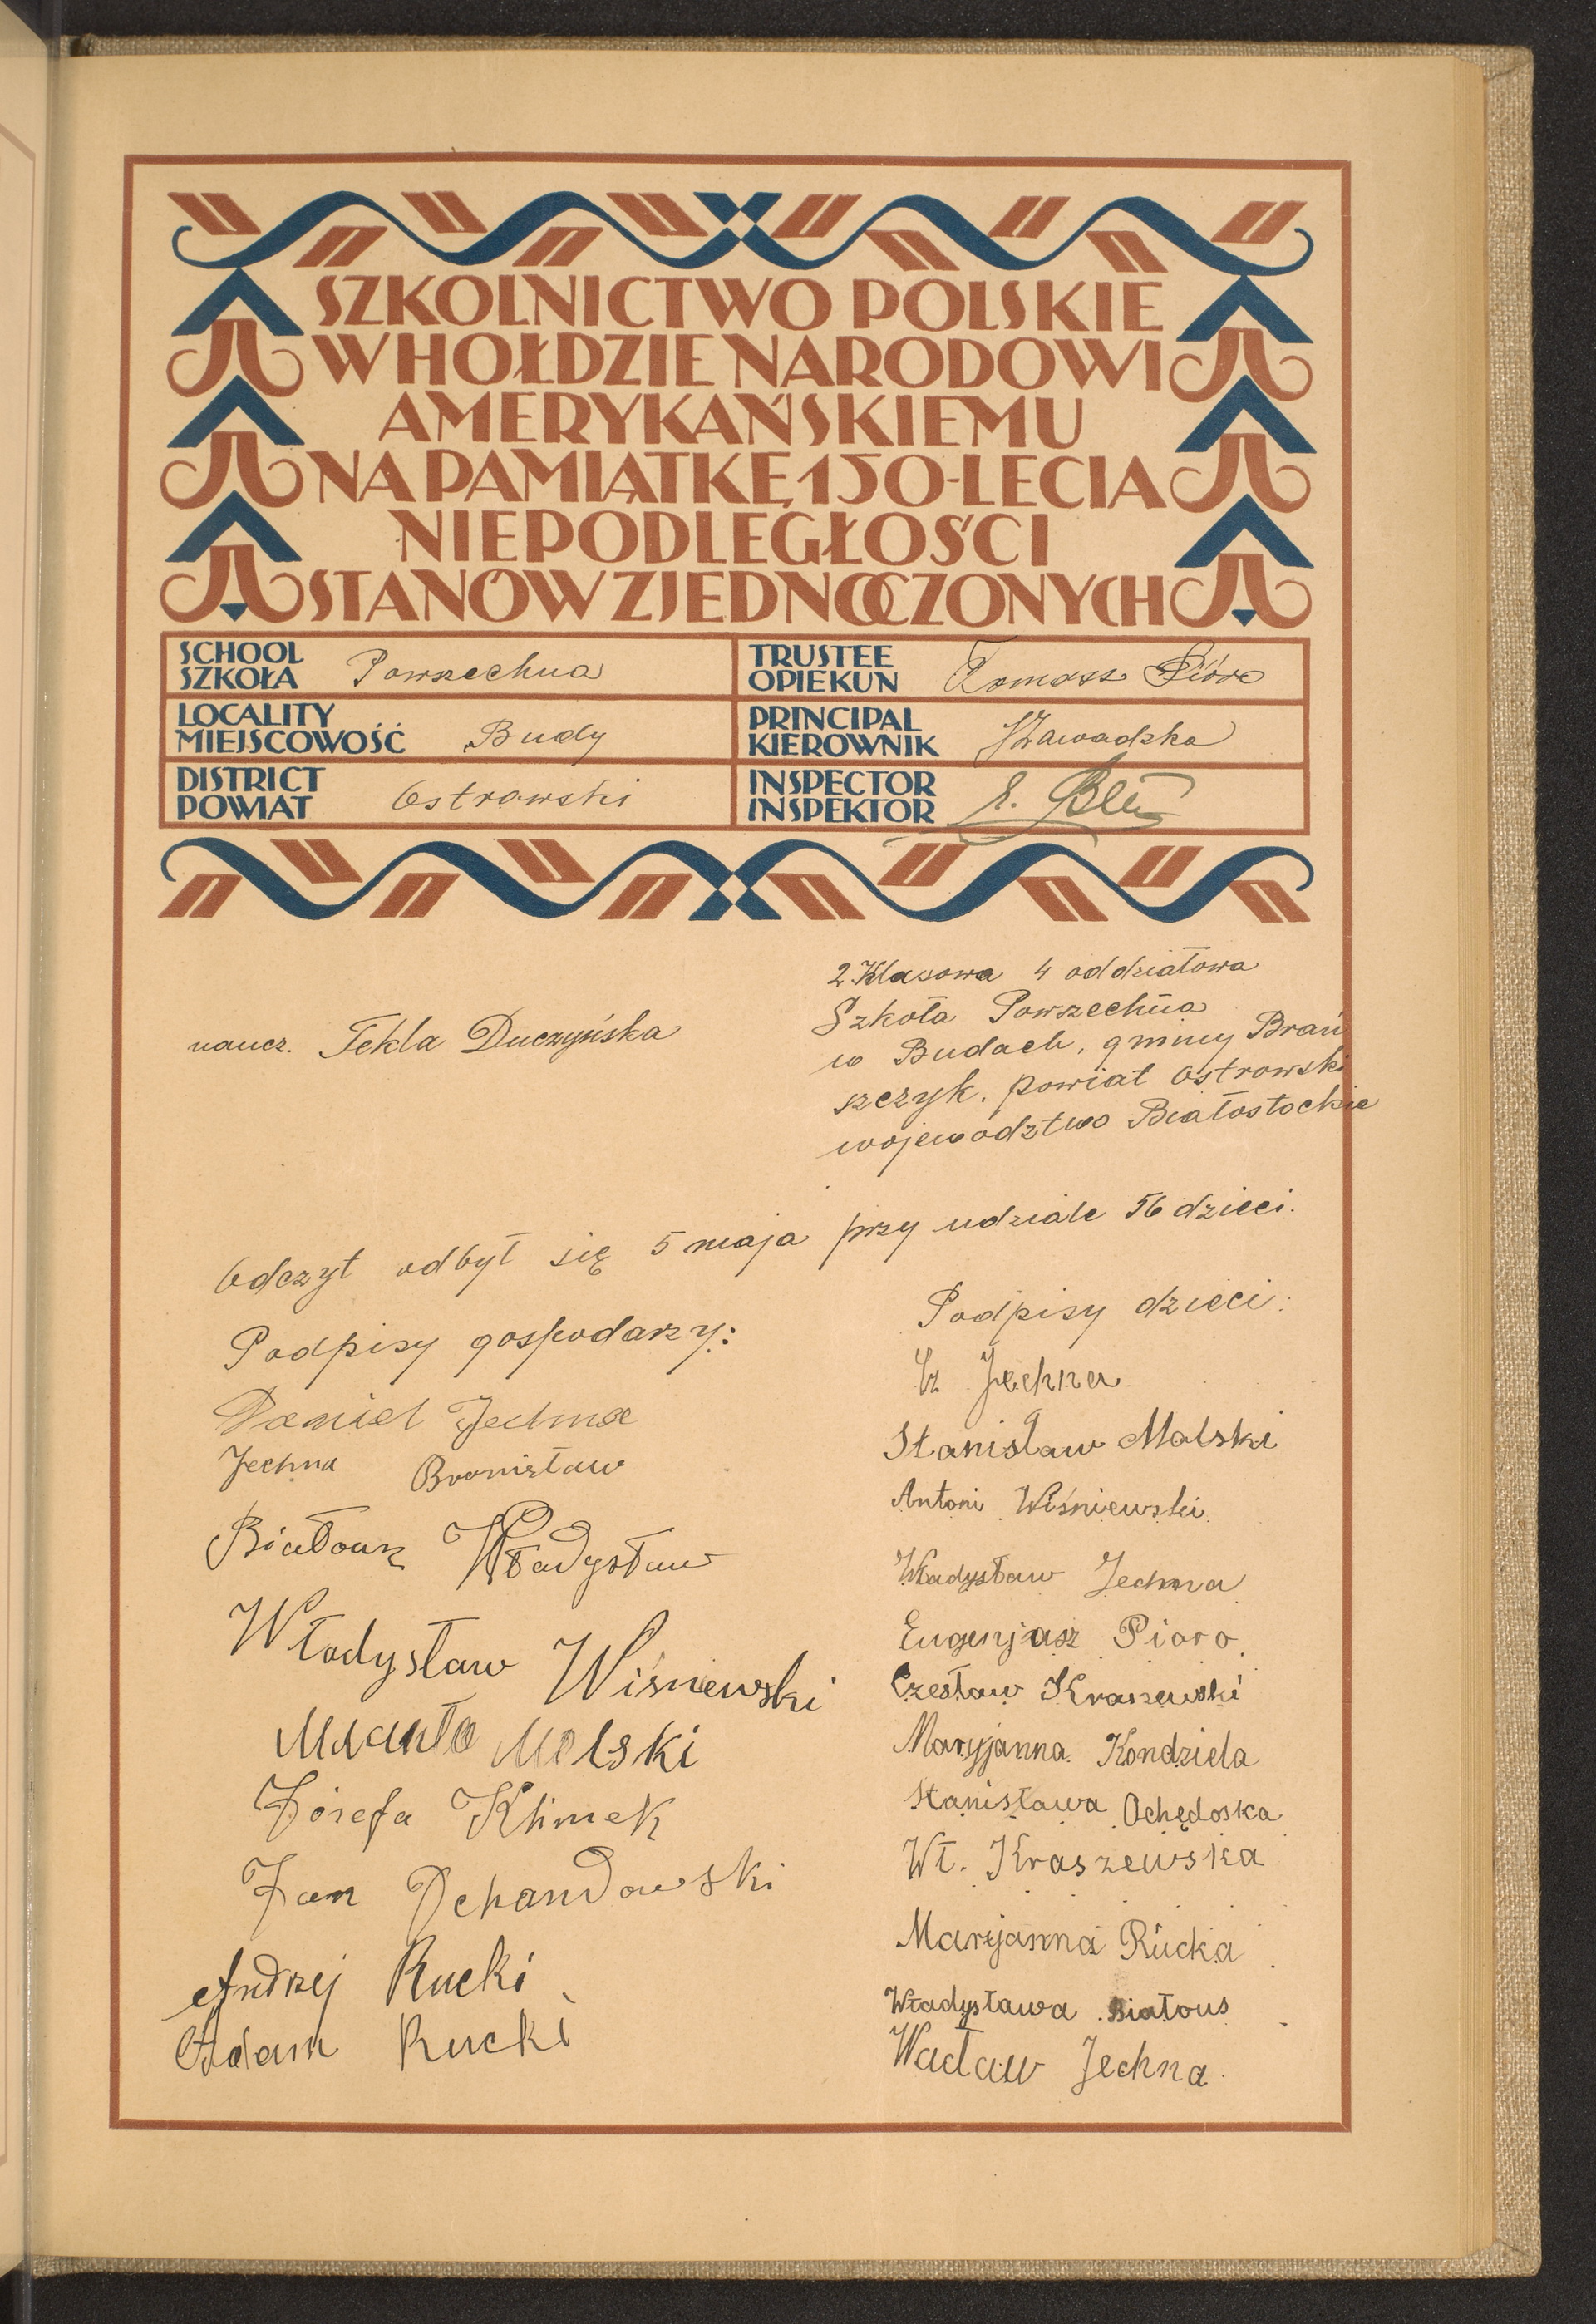 SZKOLNICTWO POLSKIE
W HOŁDZIE NARODOWI
AMERYKAŃSKIEMU
NA PAMIĄTKĘ 150-LECIA
NIEPODLEGŁOŚCI
STANÓW ZJEDNOCZONYCH
SCHOOL
SZKOŁA Powszechna
TRUSTEE
OPIEKUN Tomasz Pióro
LOCALITY
MIEJSCOWOŚĆ Budy
PRINCIPAL
KIEROWNIK Zawadzka
DISTRICT
POWIAT Ostrowski
INSPECTOR
INSPEKTOR
2 Klasowa 4 oddziałowa
Szkoła Powszechna
w Budach, gminy Brań
szczyk. powiat Ostrowski
województwo Białostockie
naucz. Tekla Duczyńska
Odczyt odbył się 5 maja przy udziale 56 dzieci.
Podpisy gospodarzy:
Daniel Jechna
Jechna Bronisław
Władysław
Władysław Wiśniewski
Molski
Józefa Klimek
Jan
Andrzej Rucki
Adam Rucki
Podpisy dzieci:
Cz Jechna
Stanisław Malski
Antoni Wiśniewski
Władysław Jechna
Eugenjusz Pioro
Czesław Kraszewski
Maryjanna Kondziela
Stanisława Ochędoska
Wł. Kraszewska
Maryjanna Rucka
Władysława Białous
Wacław Jechna.